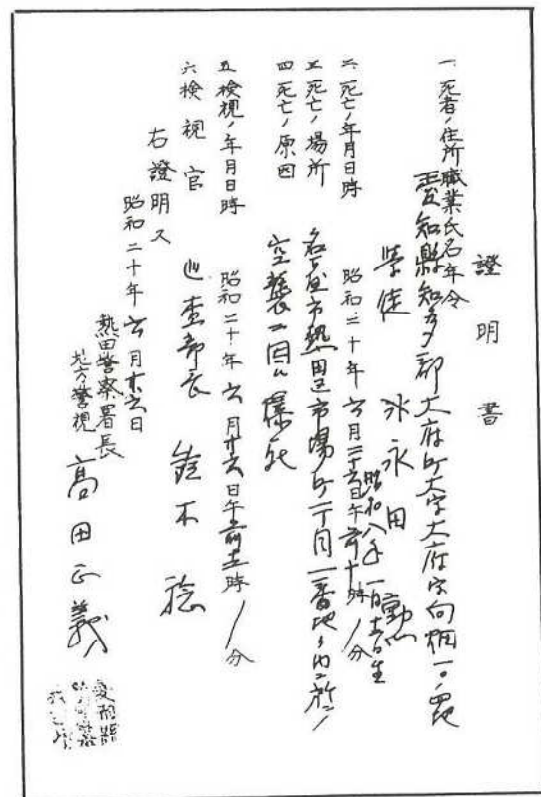 證明書
一、死者ノ住所職業氏名年令
愛知縣知多郡大府町大字大府字向畑一〇ノ四地
学徒 永田 勲
昭和八年一月十七日生
二、死亡ノ年月日時 昭和二十年六月二十六日午前十時ノ分
三、死亡ノ場所 名古屋市熱田区市場町一丁目一番地ノ内ニ於テ
四、死亡ノ原因 空襲ニ因ル爆死
五、検視ノ年月日時 昭和二十年六月廿六日午前十一時ノ分
六、検視官 巡査部長 鈴木 稔
右證明ス
昭和二十年六月廿六日
熱田警察署長
地方警視 高田正義